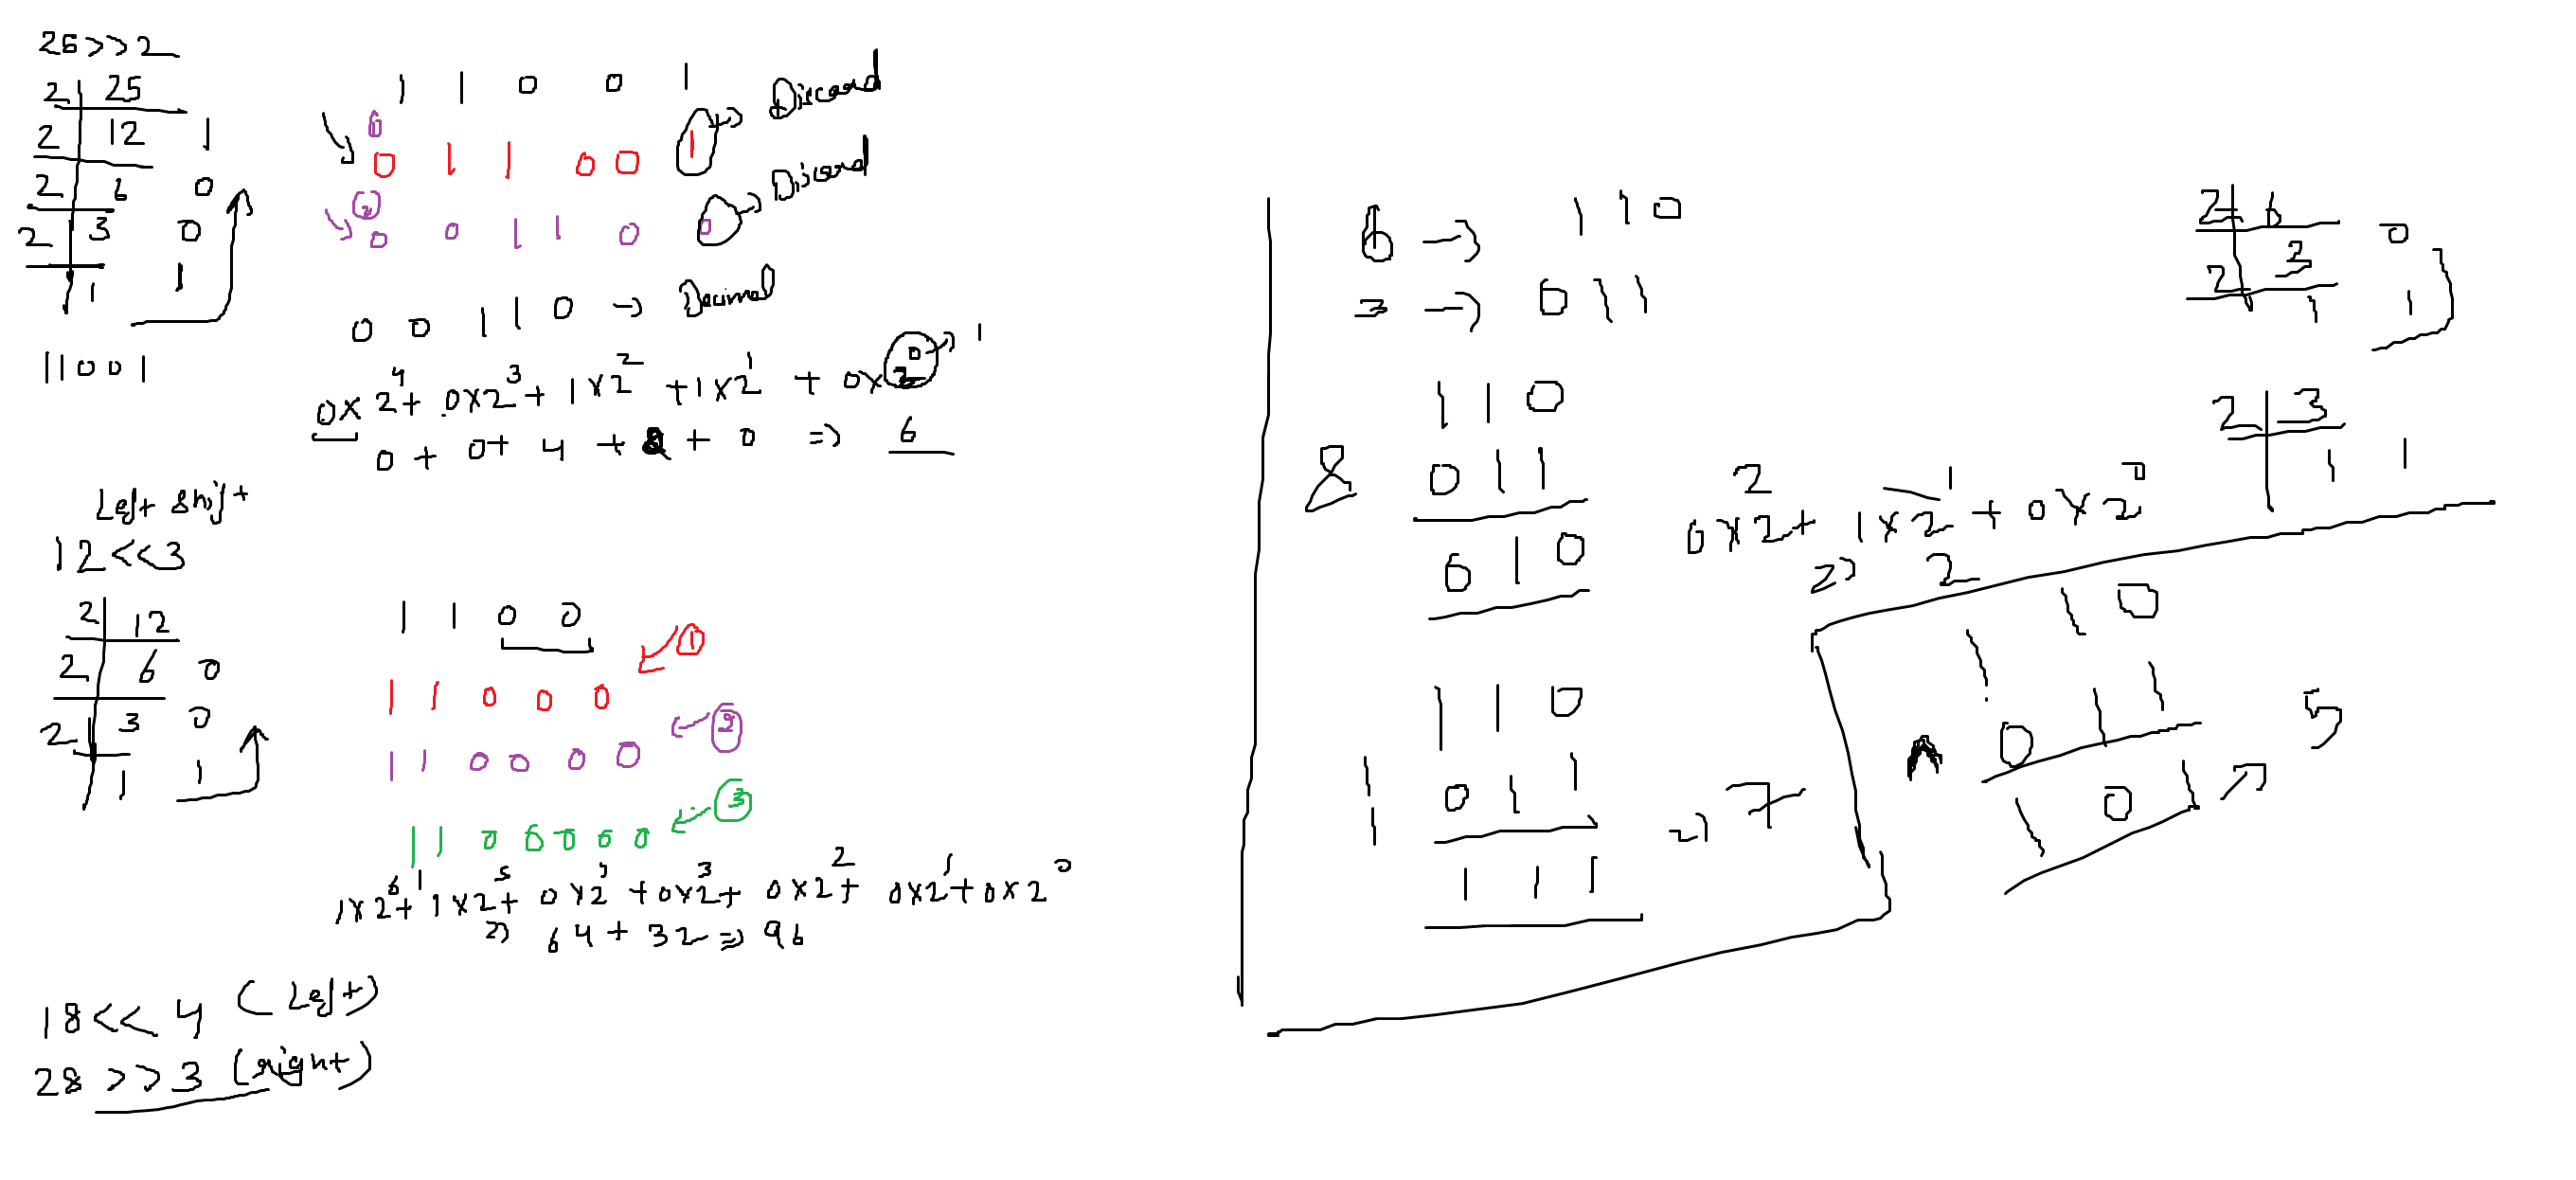 25>>2
2 25
2 12 1
2 6 0
2 3 0
1 1
11001
1 1 0 0 1
0 1 1 0 0 1 → Discard
② 0 0 1 1 0 0 → Discard
0 0 1 1 0 → Decimal
0×2^4 + 0×2^3 + 1×2^2 + 1×2^1 + 0×2^0 → 1
0 + 0 + 4 + 2 + 0 => 6
Left shift
12<<3
2 12
2 6 0
2 3 0
1 1
1 1 0 0
1 1 0 0 0 ← ①
1 1 0 0 0 0 ← ②
1 1 0 0 0 0 0 ← ③
1×2^6 + 1×2^5 + 0×2^4 + 0×2^3 + 0×2^2 + 0×2^1 + 0×2^0
=> 64 + 32 => 96
18<< 4 (Left)
28 >>3 (right)
6 → 1 1 0
3 → 0 1 1
2 6 0
2 3
1 1
2 3
1 1
1 1 0
& 0 1 1
0 1 0
0×2^2 + 1×2^1 + 0×2^0
=> 2
1 1 0
| 0 1 1
1 1 1 => 7
1 1 0
^ 0 1 1
1 0 1 → 5